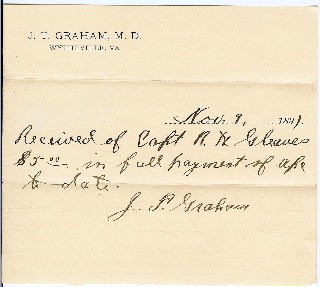 J. T. GRAHAM, M. D.
WYTHEVILLE, VA.
Nov 9, 1891.
Received of Capt R. H. Gleaves
$5.00 in full payment of a/c
to date.
J. T. Graham